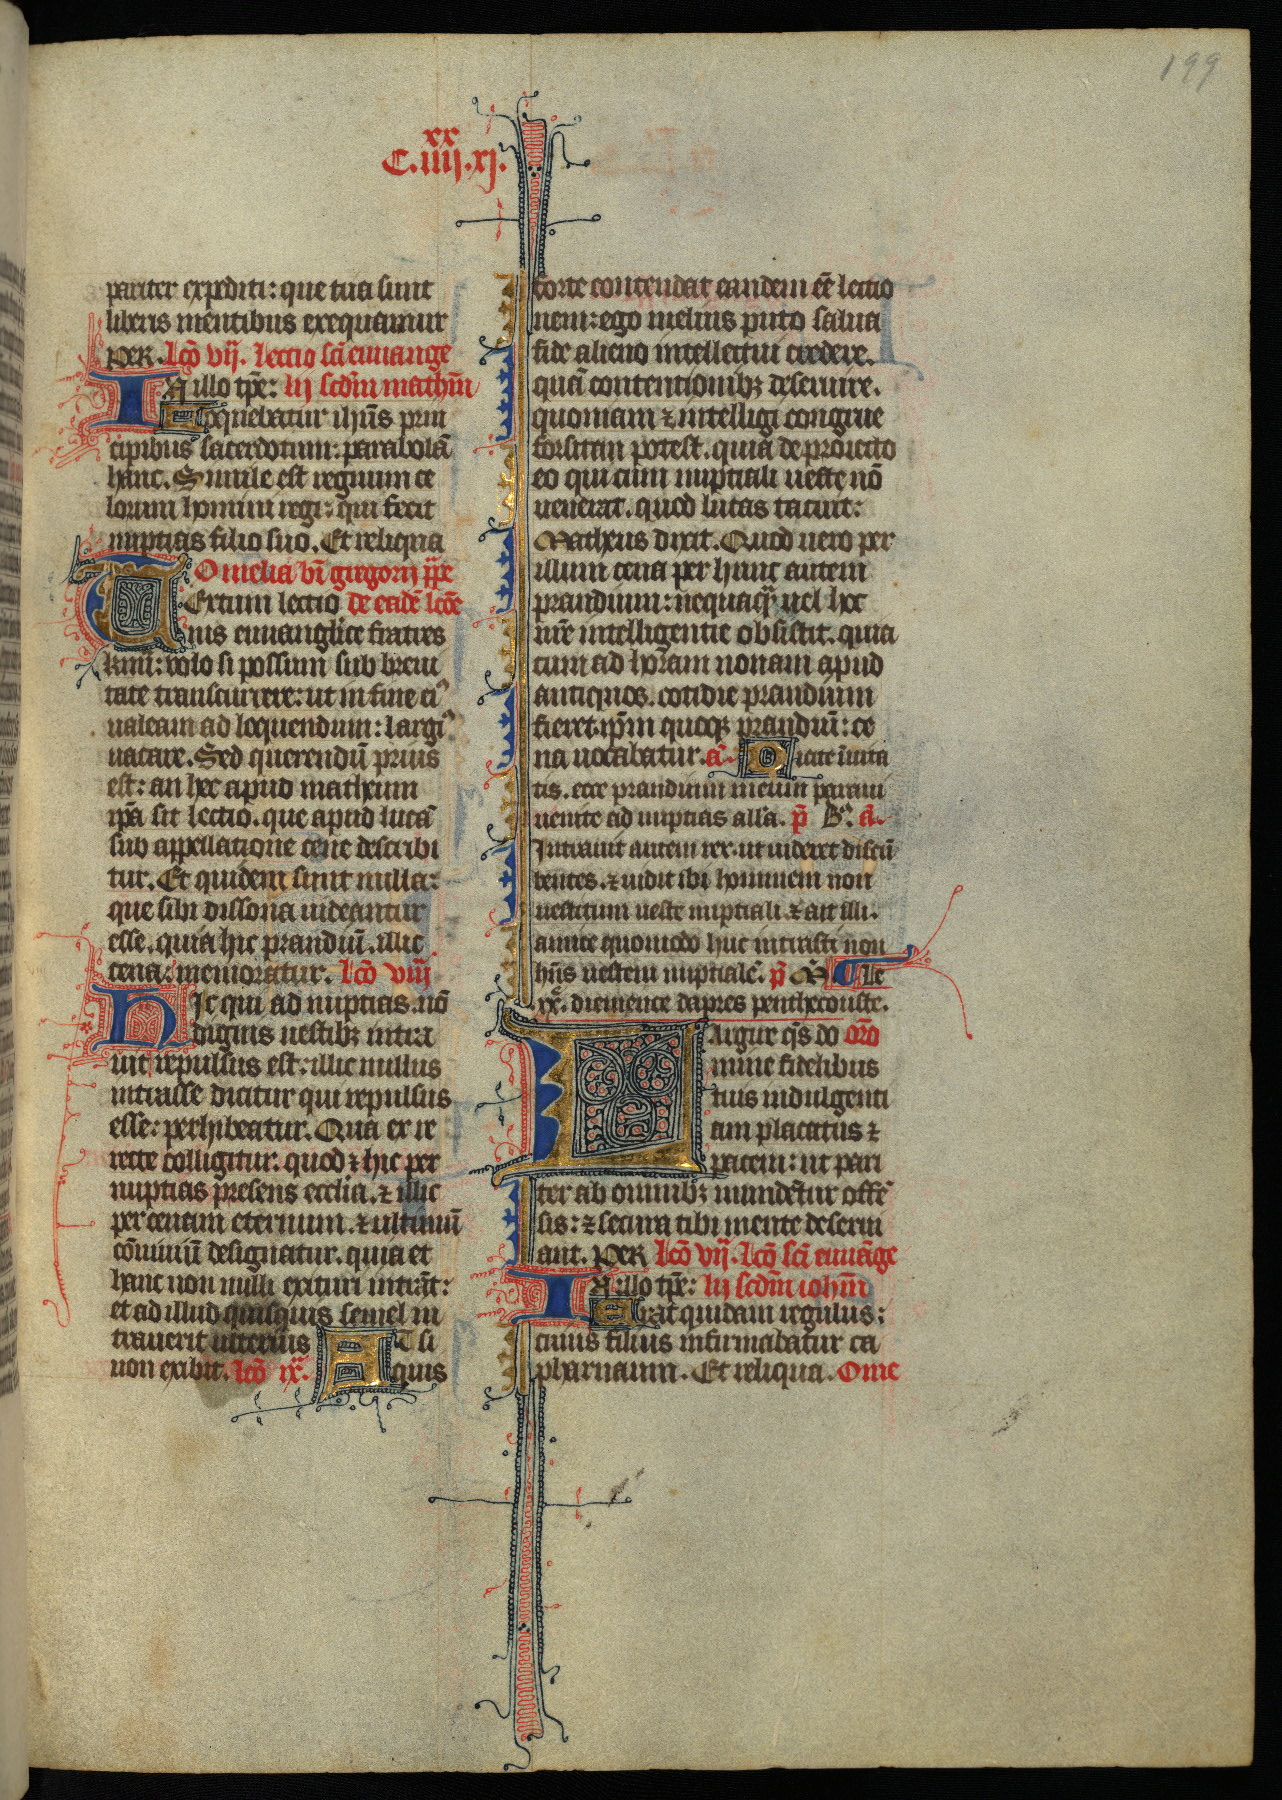 199
xx
C.iiij.xj.
pariter expediti: que tua sunt
liberis mentibus exequamur
PER. lcō vij. Lectio scī euuange
IN illo tp̄e: lij scdm mathm̄
Loquebatur ihūs prin
cipibus sacerdotum: parabolā
hanc. Simile est regnum ce
lorum homini regi: qui fecit
nuptias filio suo. Et reliqua
Omelia bī gregorij pp̄e
Textum lectio de eadē lcōe
nis euuanglīce fratres
kmī: volo si possum sub breui
tate transcurrere: ut in fine eiꝰ
ualeam ad loquendum: largiꝰ
uacare. Sed querendū prius
est: an hec apud matheum
ipā sit lectio. que apud lucā
sub appellatione cene describi
tur. Et quidem sunt nulla:
que sibi dissona uideantur
esse. quia hic prandiū. illic
cena: memoratur. lcō viij
Hic qui ad nuptias nō
dignis uestibꝫ intra
uit repulsus est: illic nullus
intrasse dicitur qui repulsus
esse: perhibeatur. Qua ex re
recte colligitur. quod ⁊ hic per
nuptias presens ecclīa. ⁊ illic
per cenam eternum. ⁊ ultimū
cōuiuiū designatur. quia et
hanc non nulli exituri intrāt:
et ad illud quisquis semel in
trauerit ulterius AT si
non exibit. lcō ix. quis
forte contendat eandem eē lectio
nem: ego melius puto salua
fide alieno intellectui credere.
quā contentionibꝫ deseruire.
quoniam ⁊ intelligi congrue
forsitan potest. quia de proiecto
eo qui cum nuptiali ueste nō
uenerat. quod lucas tacuit:
Matheus dixit. Quod uero per
illum cena per hunc autem
prandium: nequaqꝫ uel hec
nr̄e intelligentie obsistit. quia
cum ad horam nonam apud
antiquos. cotidie prandium
fieret. ip̄m quoqꝫ prandiū: ce
na uocabatur. a. Dicite īuita
tis. ecce prandium meum paraui
uenite ad nuptias allā. p̄ B. a.
Intrauit autem rex. ut uideret discū
bentes. ⁊ uidit ibi hominem non
uestitum ueste nuptiali. ⁊ ait illi.
amice quomodo huc intrasti non
hn̄s uestem nuptialē. p̄ M Le
xx. diemence dapres penthecouste.
Largire qs̄ do orō
mine fidelibus
tuis indulgenti
am placatus ⁊
pacem: ut pari
ter ab omnibꝫ mundētur offē
sis: ⁊ secura tibi mente deserui
ant. PER lcō vij. lcō scī euuāge
IN illo tp̄e: lij scdm iohm̄
Erat quidam regulus:
cuius filius infirmabatur ca
pharnaum. Et reliqua. Ome